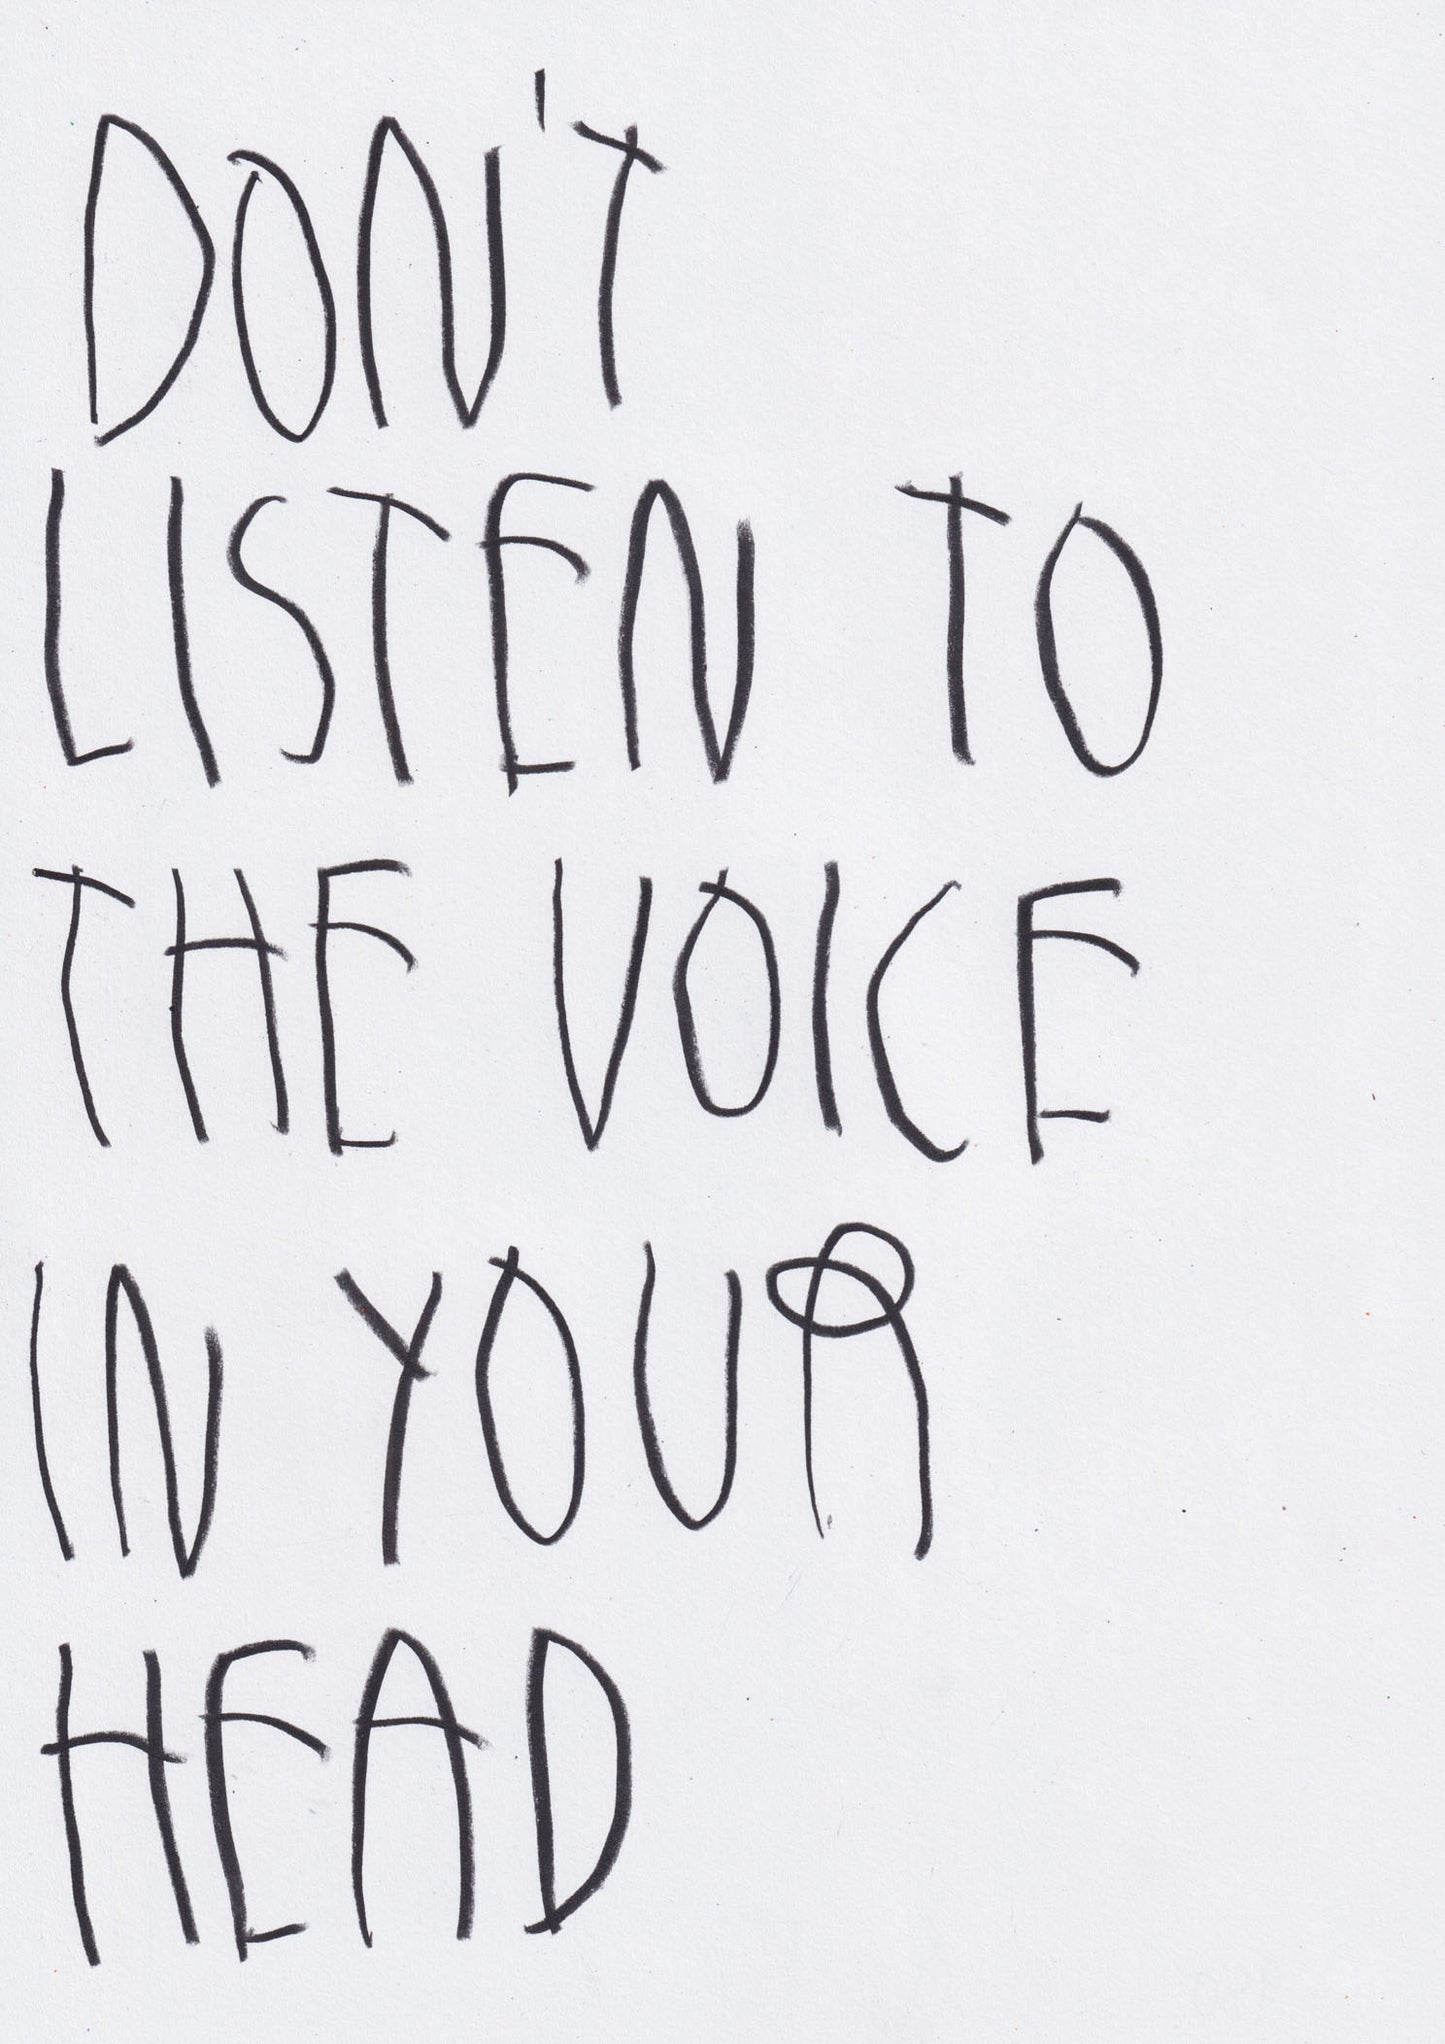 DON'T
LISTEN TO
THE VOICE
IN YOUR
HEAD